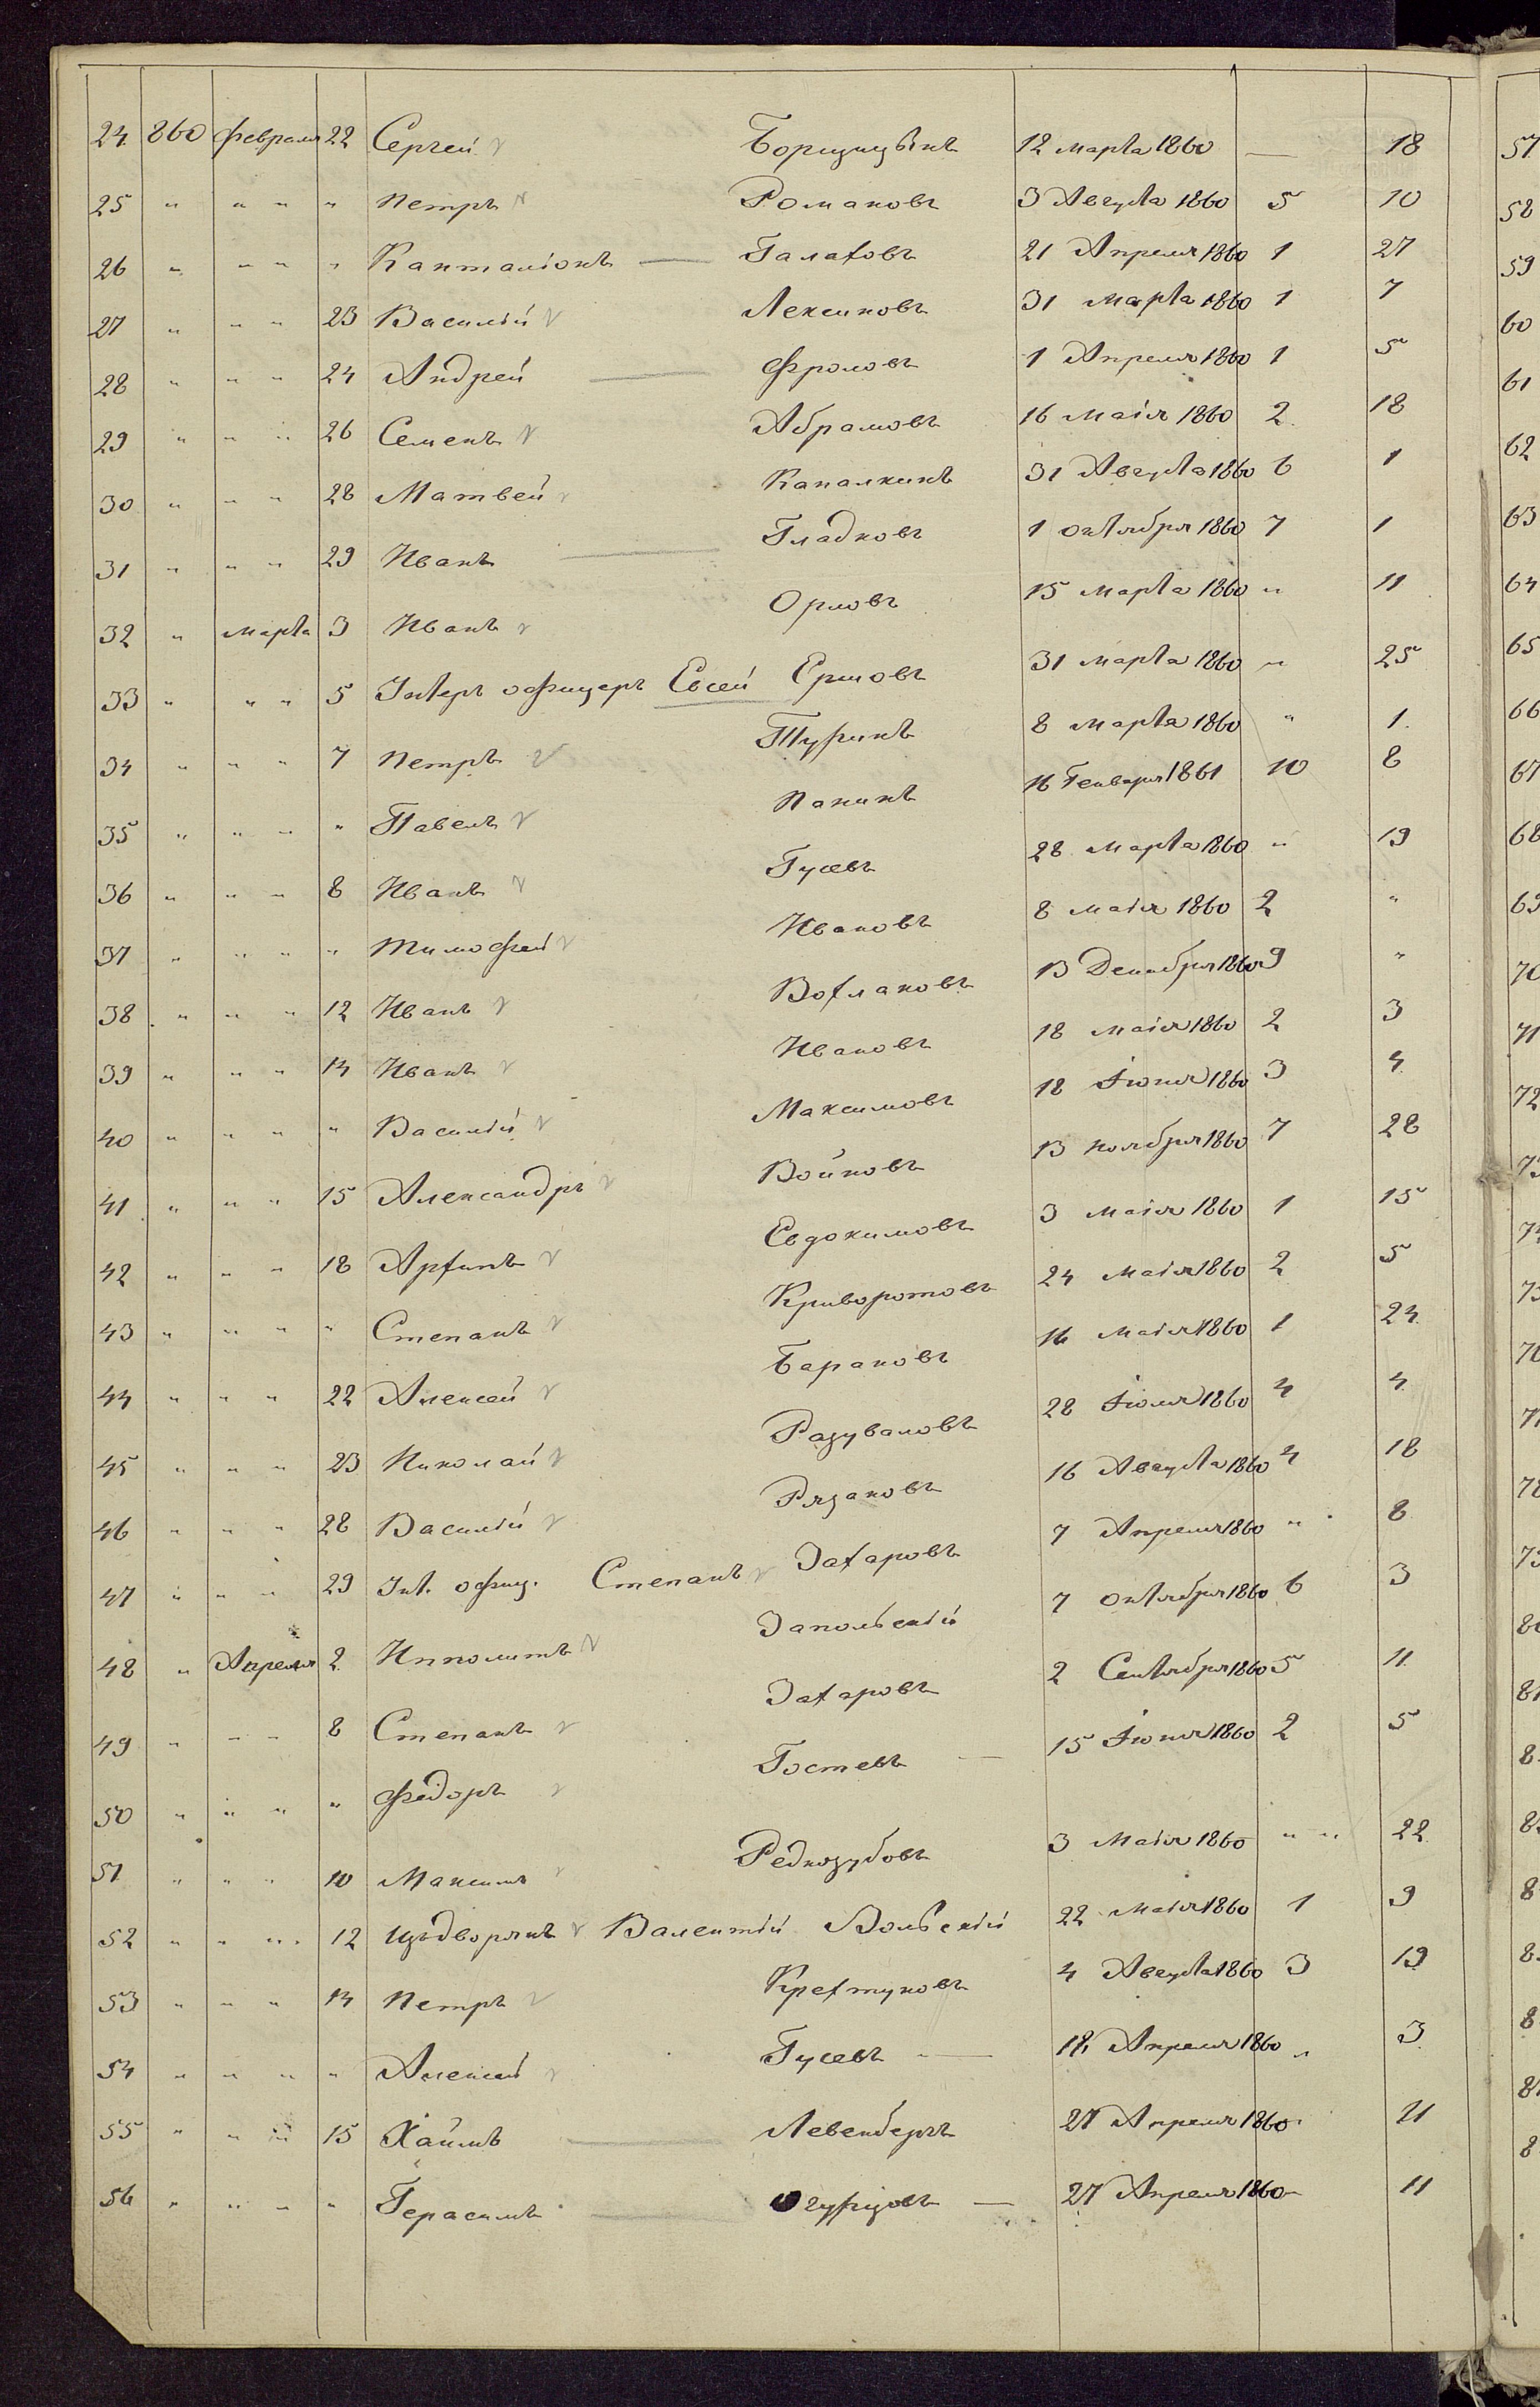 24 860 февраля 22 Сергей Борщицынъ 12 марта 1860 — 18
25 " " " " Петръ Романовъ 3 Августа 1860 5 10
26 " " " " — Галаховъ 21 Апреля 1860 1 27
27 " " " 23 Василій Лексиновъ 31 марта 1860 1 7
28 " " " 24 Андрей — Фроловъ 1 Апреля 1860 1 5
29 " " " 26 Семенъ Абрамовъ 16 маія 1860 2 18
30 " " " 28 Матвей Капалкинъ 31 Августа 1860 6 1
31 " " " 29 Иванъ — Гладковъ 1 октября 1860 7 1
32 " марта 3 Иванъ Орловъ 15 марта 1860 " 11
33 " " " 5 офицеръ Евсей Ершовъ 31 марта 1860 " 25
34 " " " 7 Петръ Туринъ 8 марта 1860 " 1
35 " " " " Павелъ Панинъ 16 Генваря 1861 10 8
36 " " " 8 Иванъ Гусевъ 28 марта 1860 " 19
37 " " " " Тимофей Ивановъ 8 маія 1860 2 "
38 " " " 12 Иванъ Вохлаковъ 13 Декабря 1860 9 "
39 " " " 14 Иванъ Ивановъ 18 маія 1860 2 3
40 " " " " Василій Максимовъ 18 Іюня 1860 3 4
41 " " " 15 Александръ Войновъ 13 ноября 1860 7 28
42 " " " 18 Архипъ Евдокимовъ 3 маія 1860 1 15
43 " " " " Степанъ Криворотовъ 24 маія 1860 2 5
44 " " " 22 Алексей Барановъ 16 маія 1860 1 24
45 " " " 23 Николай Разуваловъ 28 Іюля 1860 4 4
46 " " " 28 Василій Рязановъ 16 Августа 1860 4 18
47 " " " 29 офиц. Степанъ Захаровъ 7 Апреля 1860 " 8
48 " Апреля 2 Ипполитъ Запольскій 7 октября 1860 6 3
49 " " " 8 Степанъ Захаровъ 2 Сентября 1860 5 11
50 " " " " Федоръ Гостевъ — 15 Іюня 1860 2 5
51 " " " 10 Максимъ Редкозубовъ 3 маія 1860 " " 22
52 " " " 12 изъ дворянъ Валентій Вольскій 22 маія 1860 1 9
53 " " " 14 Петръ Крехтуновъ 4 Августа 1860 3 19
54 " " " " Алексей Гусевъ — 18 Апреля 1860 " 3
55 " " " 15 Хаимъ — Левенбергъ 27 Апреля 1860 " 11
56 " " " " Герасимъ — Огурцовъ — 27 Апреля 1860 — 11
57
58
59
60
61
62
63
64
65
66
67
68
69
70
71
72